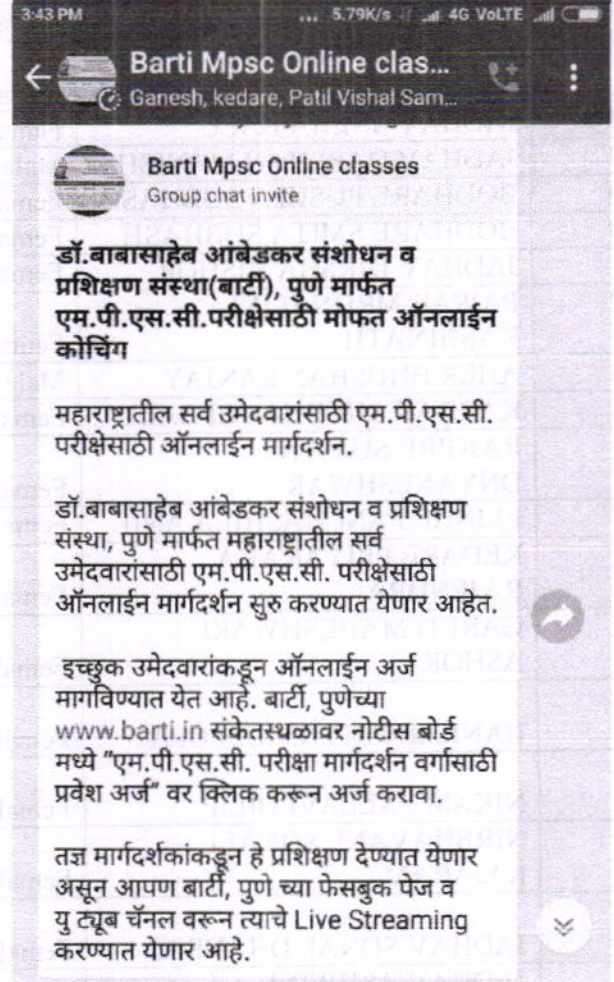 3:43 PM ... 5.79K/s 4G VoLTE
Barti Mpsc Online clas...
Ganesh, kedare, Patil Vishal Sam...
Barti Mpsc Online classes
Group chat invite
डॉ.बाबासाहेब आंबेडकर संशोधन व
प्रशिक्षण संस्था(बार्टी), पुणे मार्फत
एम.पी.एस.सी.परीक्षेसाठी मोफत ऑनलाईन
कोचिंग
महाराष्ट्रातील सर्व उमेदवारांसाठी एम.पी.एस.सी.
परीक्षेसाठी ऑनलाईन मार्गदर्शन.
डॉ.बाबासाहेब आंबेडकर संशोधन व प्रशिक्षण
संस्था, पुणे मार्फत महाराष्ट्रातील सर्व
उमेदवारांसाठी एम.पी.एस.सी. परीक्षेसाठी
ऑनलाईन मार्गदर्शन सुरु करण्यात येणार आहेत.
इच्छुक उमेदवारांकडून ऑनलाईन अर्ज
मागविण्यात येत आहे. बार्टी, पुणेच्या
www.barti.in संकेतस्थळावर नोटीस बोर्ड
मध्ये "एम.पी.एस.सी. परीक्षा मार्गदर्शन वर्गासाठी
प्रवेश अर्ज" वर क्लिक करून अर्ज करावा.
तज्ञ मार्गदर्शकांकडून हे प्रशिक्षण देण्यात येणार
असून आपण बार्टी, पुणे च्या फेसबुक पेज व
यु ट्यूब चॅनल वरून त्याचे Live Streaming
करण्यात येणार आहे.